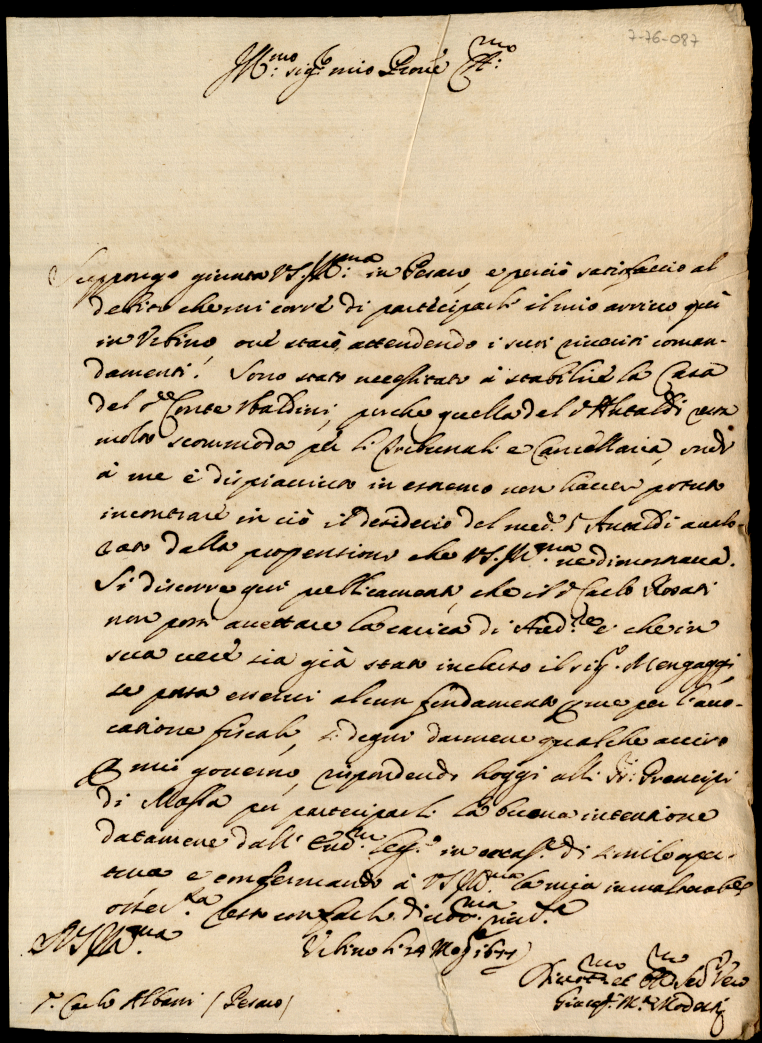 7-76-087
Ill:mo sig.r mio Prone Col:mo
Suppongo giunta VS. Ill:ma in Pesaro, e perciò satisfaccio al
debito che mi corre di participarli il mio arrivo quì
in Vrbino ove starò attendendo i suoi riveriti coman-
damenti. Sono stato necessitato à stabilire la Casa
del s.r Conte Vbaldini, perche quella del s.r Antaldi era
molto scommoda per li Tribunali e Cancellaria, onde
à me è dispiaciuto in estremo non haver potuto
incontrare in ciò il desiderio del med.o s. Antaldi avalo-
rato dalla propensione che VS. Ill.ma ne dimostrava.
Si discorre qui publicamente, che il s.r Carlo Rosati
non possi accettare la carica di Aud.re e che in
sua vece sia già stato incluso il sig.r Mengacci,
se possa esservi alcun fondamento, come per l'avo-
catione fiscale, si degni darmene qualche avviso
per mio governo, rispondendo hoggi alli ss.ri Prencipi
di Massa per participarli la buona intenzione
datamene dall' Em.mo Leg.o in occas.e di simile aper-
tura e confermando à VS. Ill.ma la mia inviolabile
osser.za resto con farle div.ma river.za
D VS Ill.ma
Vrbino li 24 Mag.o
Divot.mo et Obl.mo Ser.re Vero
S.r Carlo Albani (Pesaro)